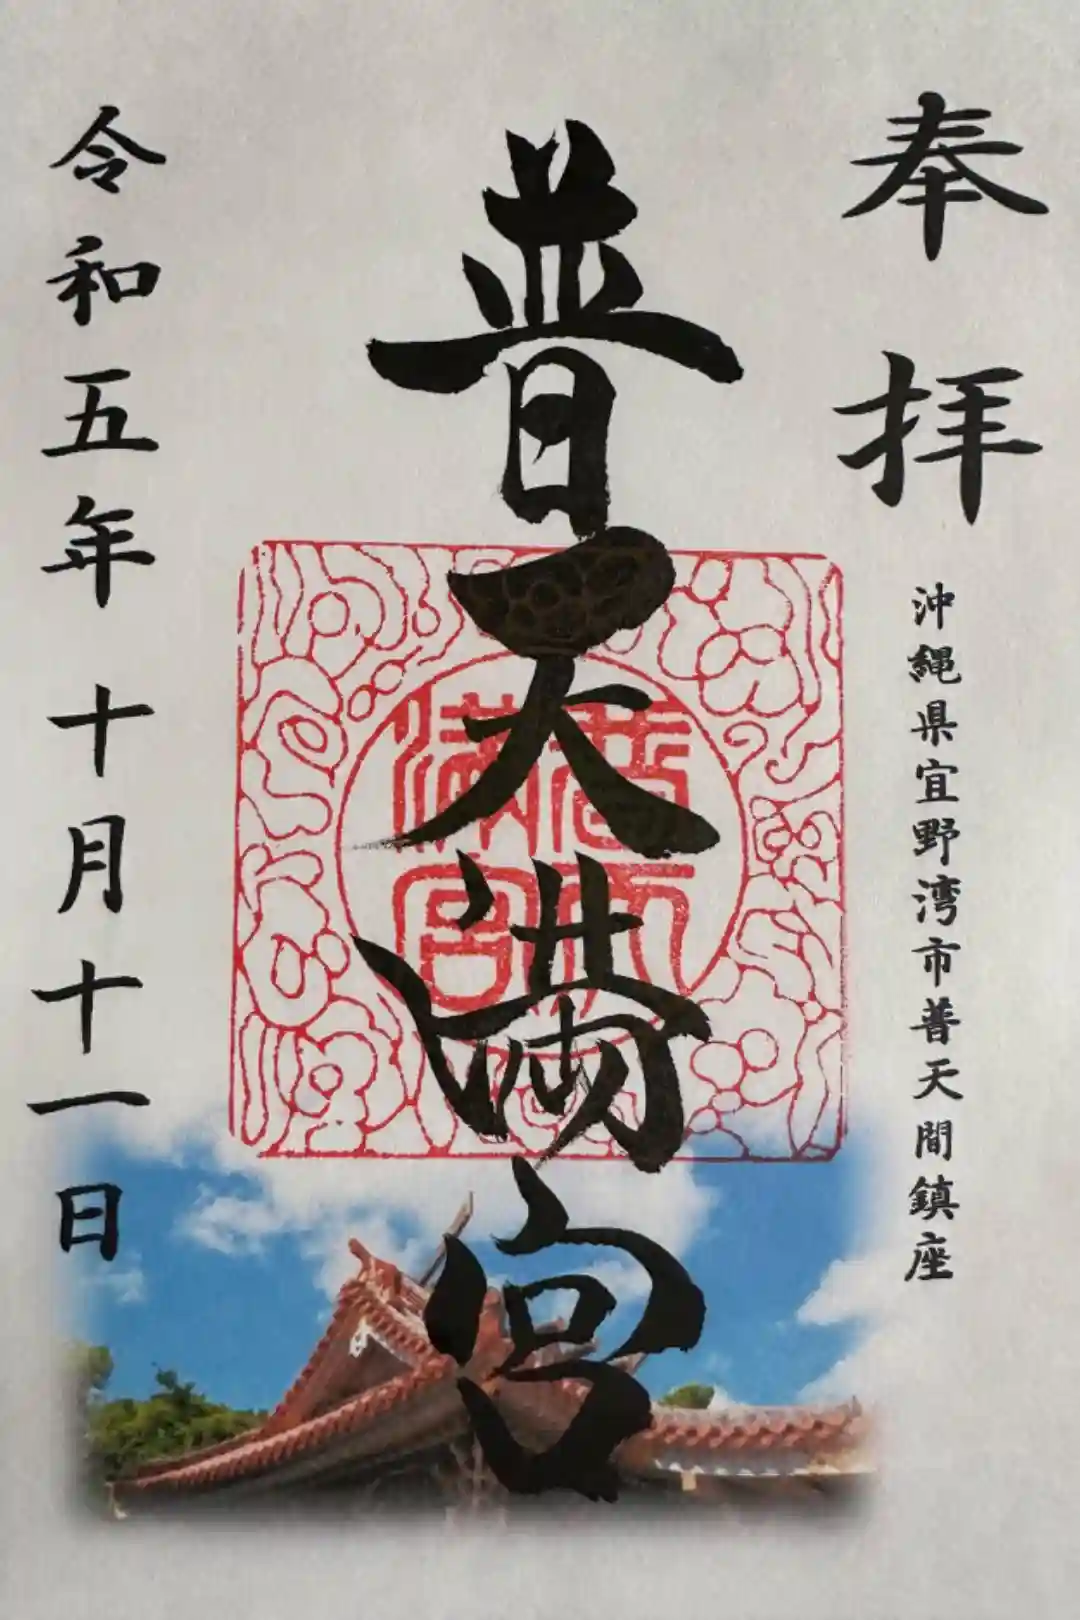 奉拝
沖縄県宜野湾市普天間鎮座
普天満宮
普天満宮
令和五年十月十一日